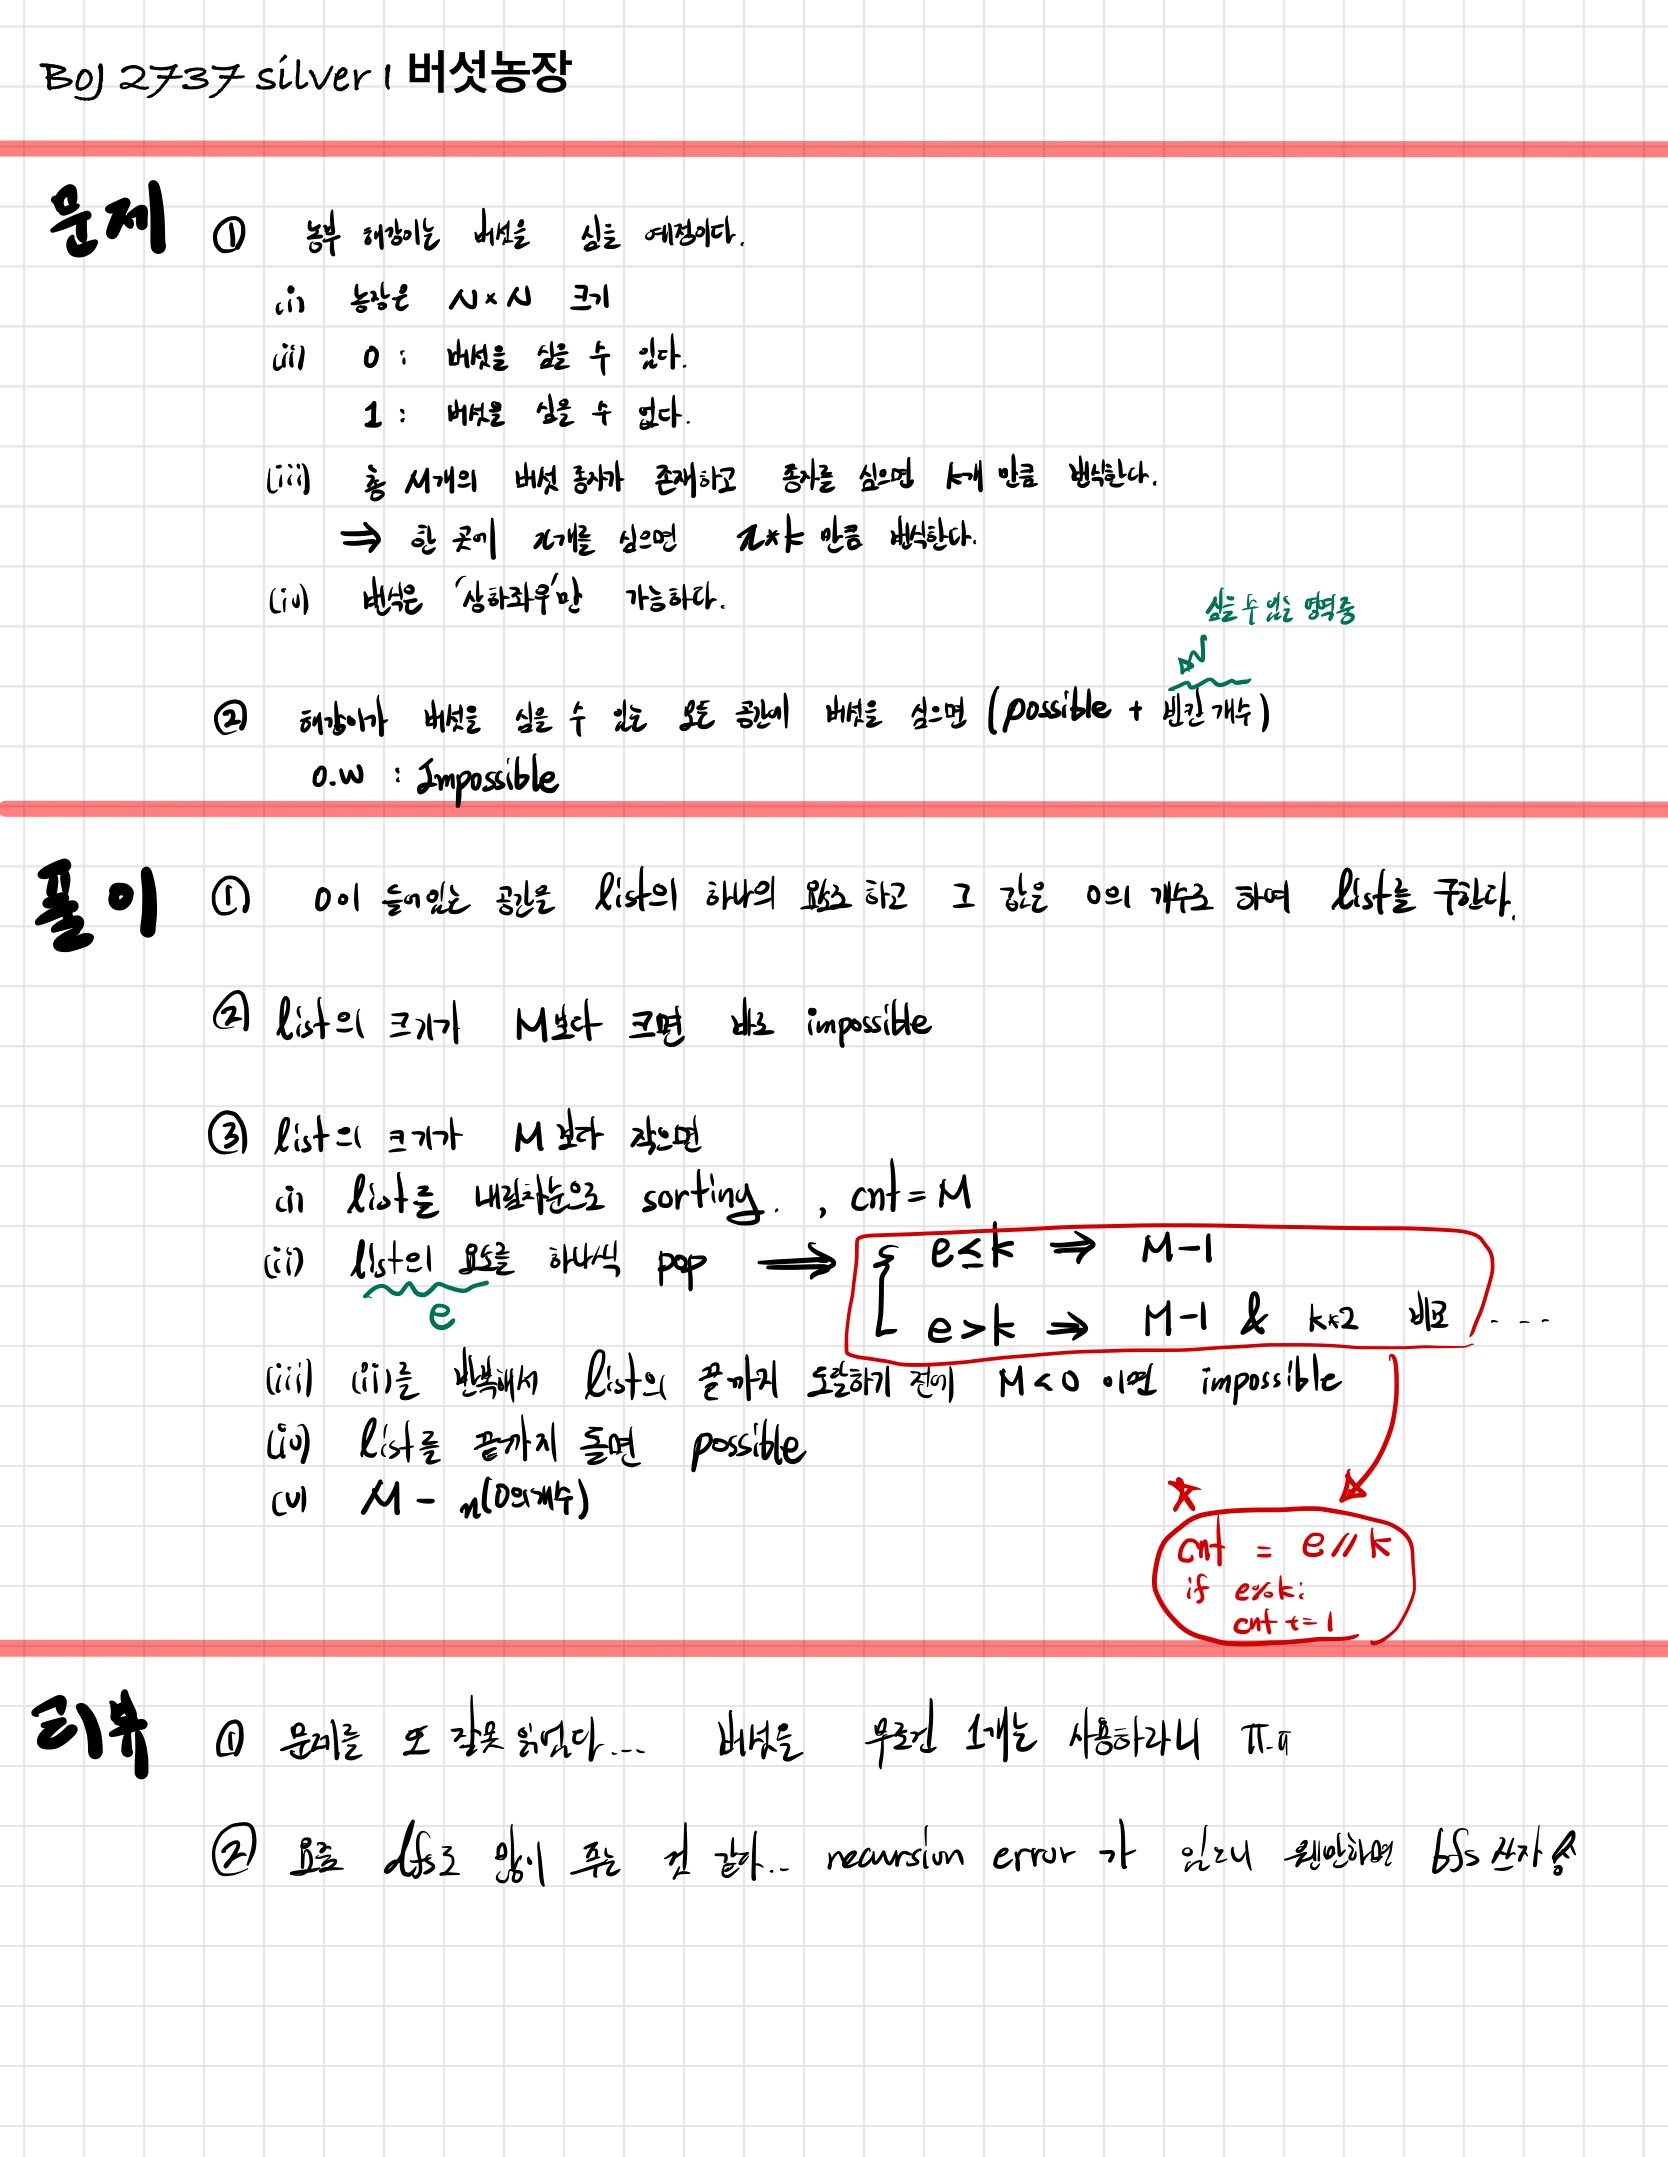 BOJ 2737 silver 1 버섯농장
문제
① 농부 해강이는 버섯을 심을 예정이다.
(i) 농장은 N×N 크기
(ii) 0 : 버섯을 심을 수 있다.
1 : 버섯을 심을 수 없다.
(iii) 총 M개의 버섯 종자가 존재하고 종자를 심으면 k개 만큼 번식한다.
⇒ 한 곳에 x개를 심으면 x*k 만큼 번식한다.
(iv) 번식은 '상하좌우'만 가능하다.
심을 수 있는 영역중
② 해강이가 버섯을 심을 수 있는 모든 공간에 버섯을 심으면 (possible + 빈칸 개수)
O.W : Impossible
풀이
① 0이 들어있는 공간을 list의 하나의 요소로 하고 그 값은 0의 개수로 하여 list를 구한다.
② list의 크기가 M보다 크면 바로 impossible
③ list의 크기가 M보다 작으면
(i) list를 내림차순으로 sorting. , cnt = M
(ii) list의 요소를 하나씩 pop ⇒ { e≤k ⇒ M-1
e
e>k ⇒ M-1 & k*2 비교 ....
(iii) (ii)를 반복해서 list의 끝까지 도달하기 전에 M<0 이면 impossible
(iv) list를 끝까지 돌면 possible
(v) M - n(0의개수)
★
cnt = e//k
if e%k:
cnt += 1
리뷰
① 문제를 또 잘못 읽었다... 버섯을 무조건 1개는 사용하라니 ㅠ.ㅠ
② 요즘 dfs로 많이 푸는 것 같다... recursion error가 있으니 웬만하면 bfs 쓰자